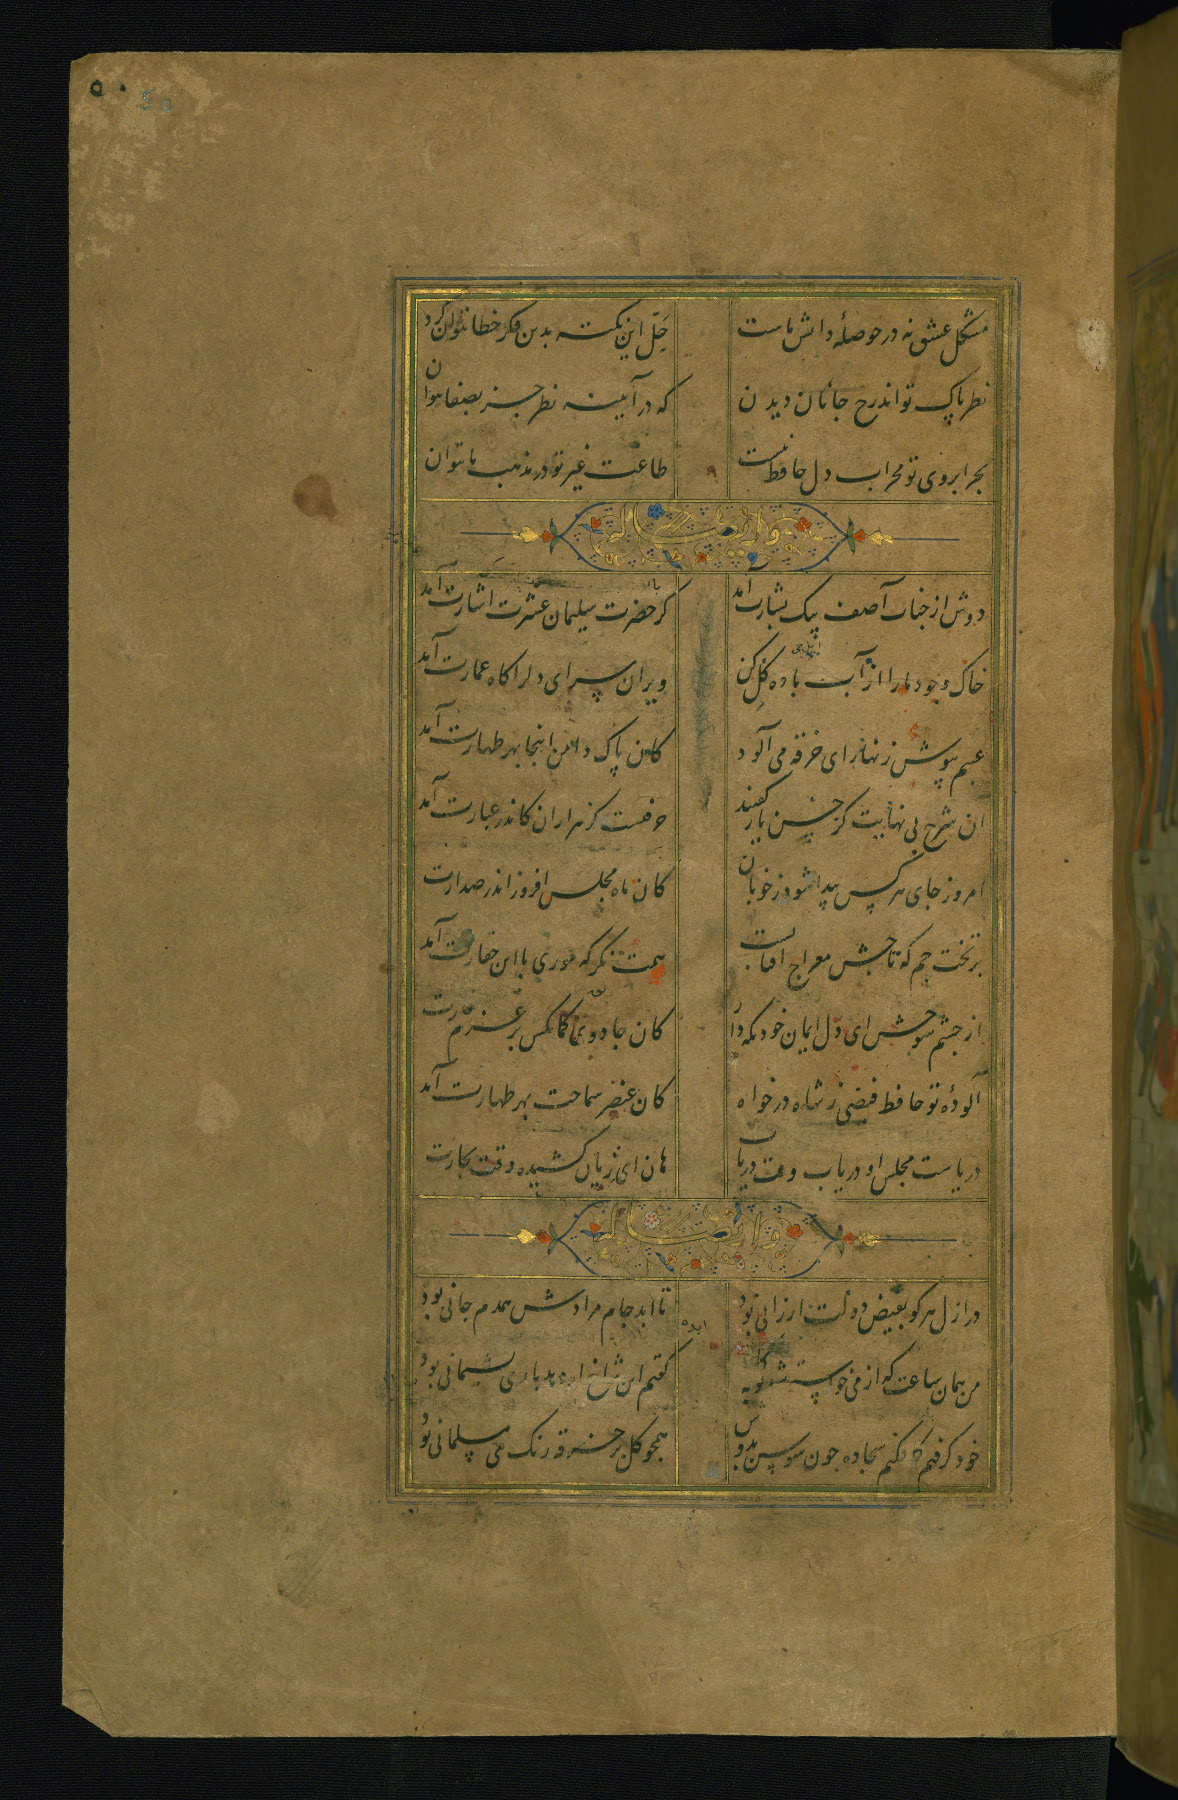 ۵۰ 50
مشکل عشق نه در حوصلهٔ دانش ماست حل این نکته بدین فکر خطا نتوان کرد
نظر پاک تواند رخ جانان دیدن که در آیینه نظر جز بصفا نتوان
بجز ابروی تو محراب دل حافظ نیست طاعت غیر تو در مذهب ما نتوان
وله ایضا
دوش از جناب آصف پیک بشارت آمد کز حضرت سلیمان عشرت اشارت آمد
خاک وجود ما را از آب باده گل کن ویران سرای دل را گاه عمارت آمد
عیبم بپوش زنهار ای خرقه می آلود کان پاک دامن اینجا بهر طهارت آمد
این شرح بی نهایت کز حسن یار گفتند حرفیست کز هزاران کاندر عبارت آمد
امروز جای هر کس پیدا شود ز خوبان کان ماه مجلس افروز اندر صدارت
بر تخت جم که تاجش معراج آفتابست همت نگر که موری با این حقارت آمد
از چشم شوخش ای دل ایمان خود نگه دار کان جادوی کمانکش بر عزم غارت
آلودهٔ تو حافظ فیضی ز شاه در خواه کان عنصر سماحت بهر طهارت آمد
دریاست مجلس او دریاب وقت دریاب هان ای زیان کشیده وقت تجارت
وله ایضا
در ازل هر کو بفیض دولت ارزانی بود تا ابد جام مرادش همدم جانی بود
من همان ساعت که از می خواستم شد توبه کار گفتم این شاخ ار دهد باری پشیمانی بود
خود گرفتم کافکنم سجاده چون سوسن بدوش همچو گل بر خرقه رنگ می مسلمانی بود